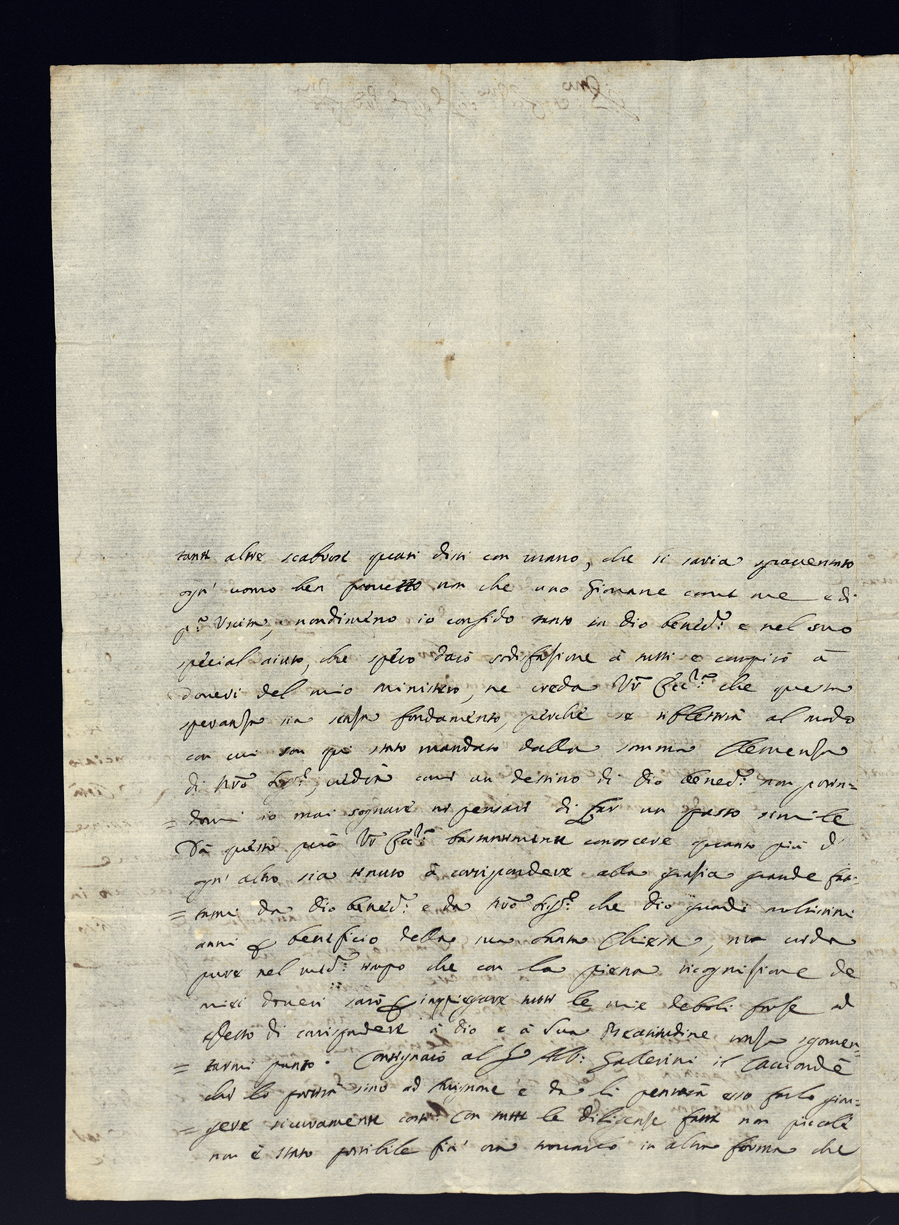 tante altre scabrose quasi dissi con mano, che si saria spaventato
ogn' uomo ben provetto non che uno Giovane come me e di
p.ª Uscita, nondimeno io confido tanto in Dio bened.º e nel suo
special aiuto, che spero darò sodisfasione à tutti e compirò à
doveri del mio Ministero, ne creda Vr̃ Ecc.ª che questa
speransa sia sensa fondamento, perche se rifletterà al modo
con cui son qui stato mandato dalla somma Clemensa
di Nrõ Sig.re, vedrà come un destino di Dio bened.º non poten=
=domi io mai sognare nè pensare di per un posto simile
Da questo però Vr̃ Ecc.ª bastantemente conoscere quanto più d'
ogn' altro sia tenuto à corrispondere alla grasia grande fat=
=tami da Dio bened.º e da Nrõ Sig.re che Dio guardi moltissimi
anni per beneficio della sua Santa Chiesa, ma creda
pure nel med.º tempo che con la piena ricognisione de
miei doveri sarò per impiegare tutte le mie deboli forse ad
effetto di corrispondere à Dio e à Sua Beatitudine, sensa sgomen=
=tarmi punto. Consignarò al S.r Ab: Gallerini il
che lo porterà sino ad Avignone e da li penserà esso farlo giun=
=gere sicuramente costì. Con tutte le diligense fatte non piccole
non è stato possibile fin' ora trovarlo in altra forma che